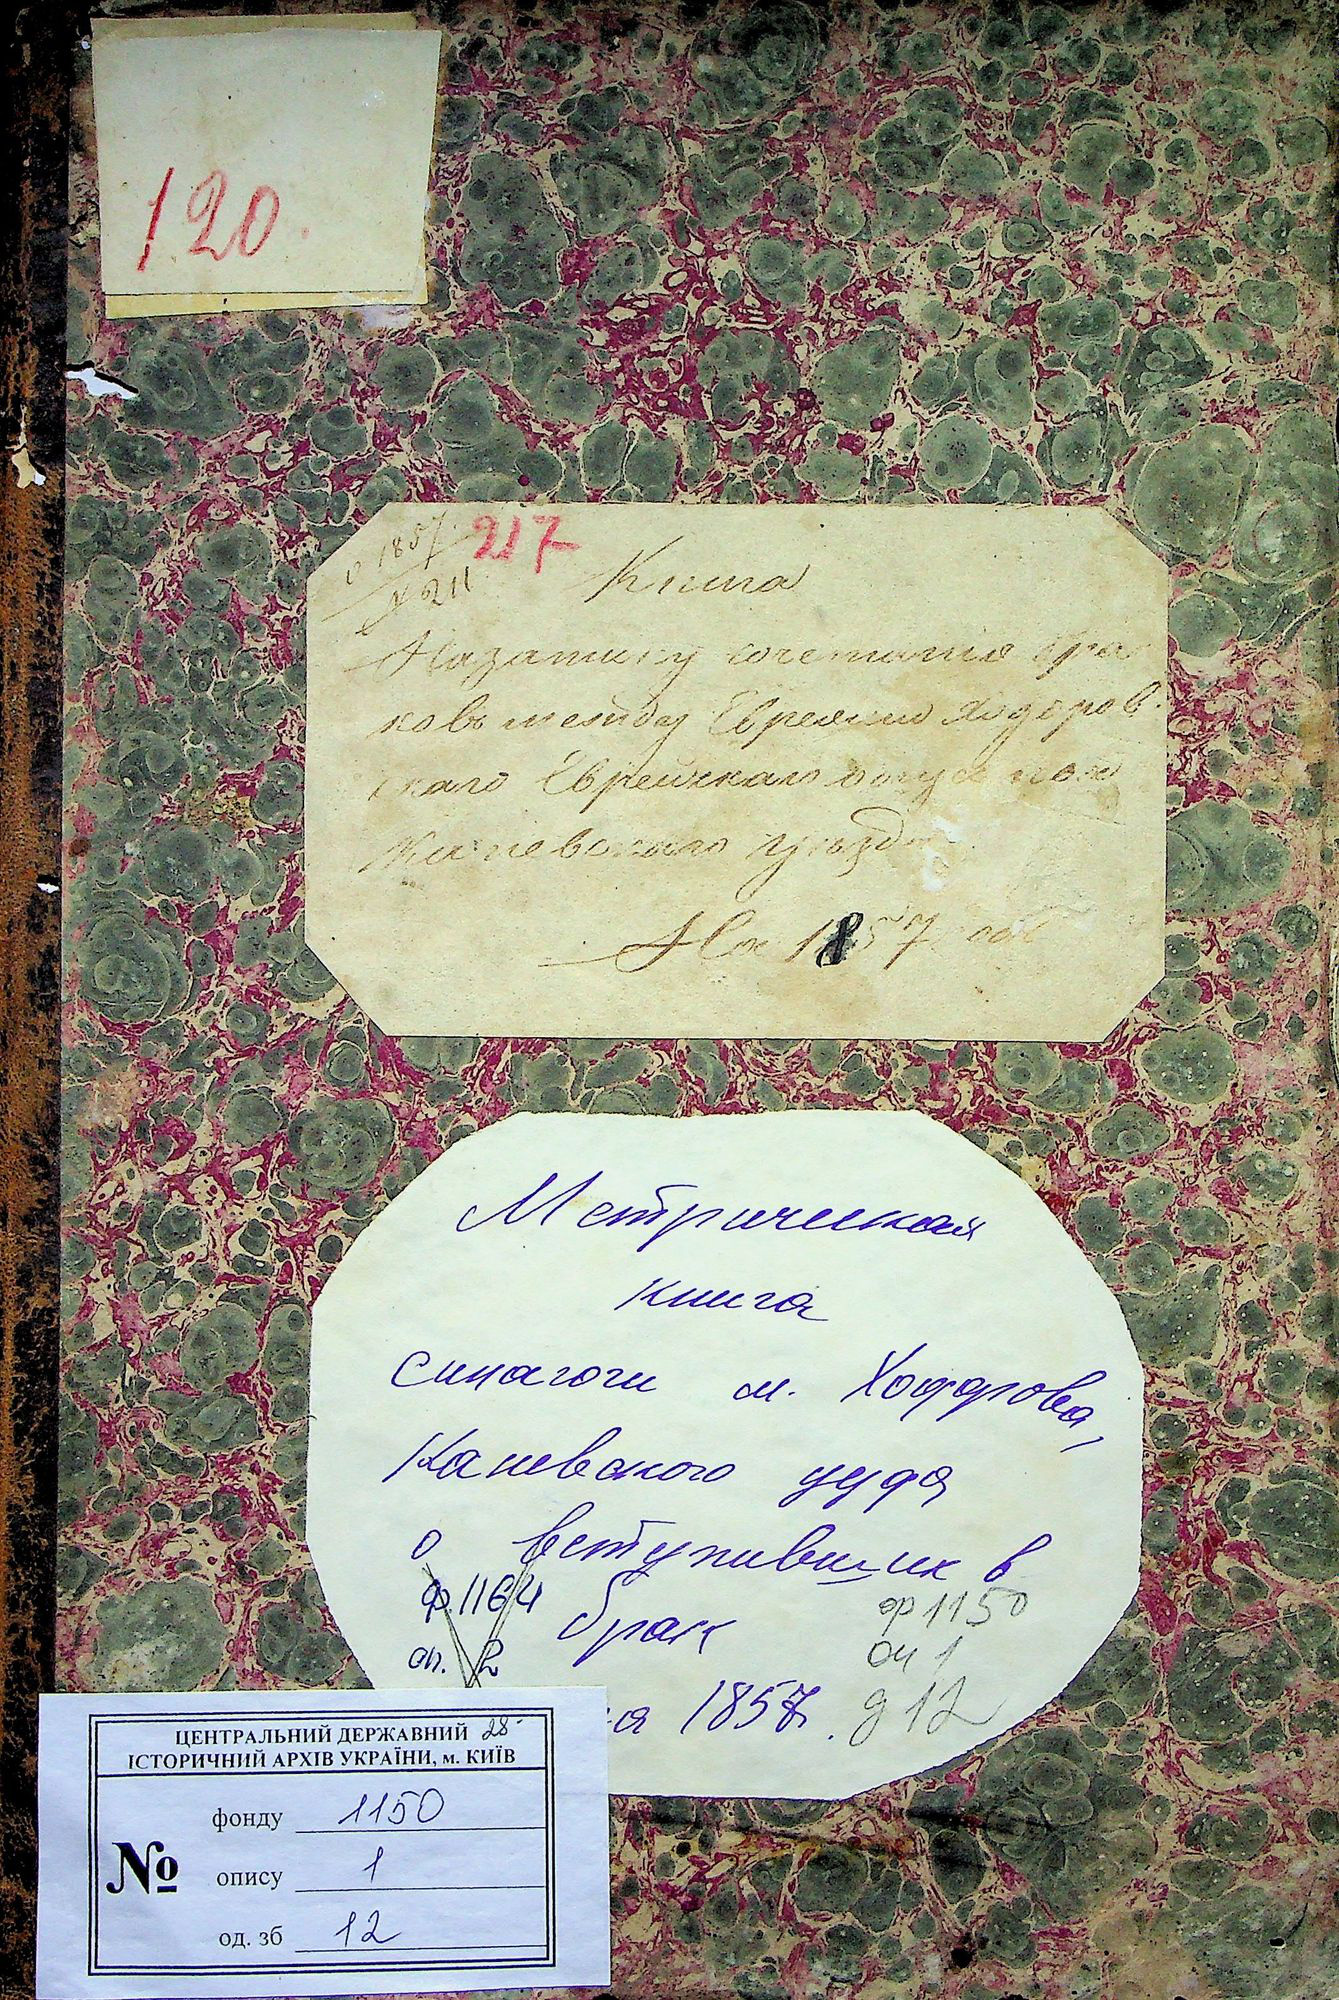 120.
1857
217
№ 211
Книга
На записку сочетания бра
ковъ между Евреями Ходоров
скаго Еврейскаго
Каневскаго уезда
На 1857 годъ
Метрическая
книга
синагоги м. Ходорова,
Каневского уезда
о вступивших в
брак
ф. 1164
оп. 2
ф 1150
оп 1
д 12
1857.
28
ЦЕНТРАЛЬНИЙ ДЕРЖАВНИЙ
ІСТОРИЧНИЙ АРХІВ УКРАЇНИ, м. КИЇВ
№
фонду 1150
опису 1
од. зб 12